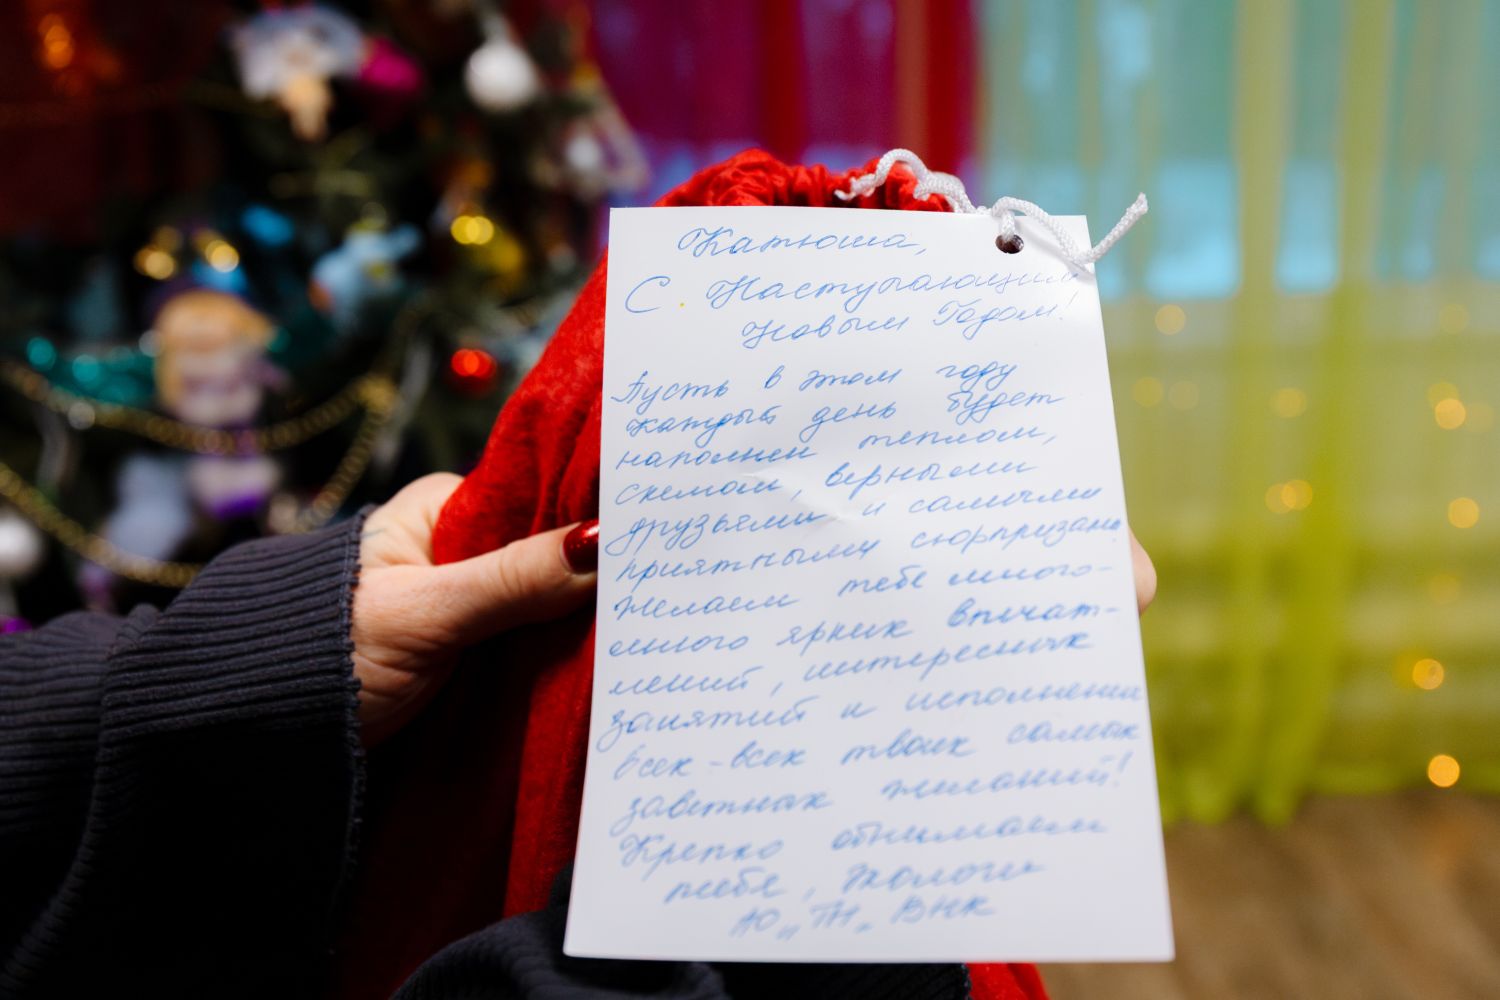 Катюша,
С Наступающим
Новым Годом!
Пусть в этом году
каждый день будет
наполнен теплом,
смехом, верными
друзьями и самыми
приятными сюрпризами
желаем тебе много-
много ярких впечат-
лений, интересных
занятий и исполнения
всех-всех твоих самых
заветных желаний!
Крепко обнимаем
тебя, Экологи
АО „ТН„ ВНК